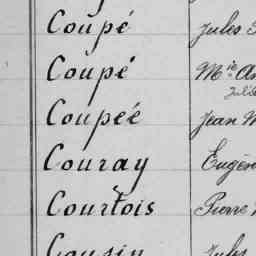 Coupé Jules
Coupé Mie
Julie
Coupeé Jean
Couray Eugèn
Courtois Pierre
Cousin Jules